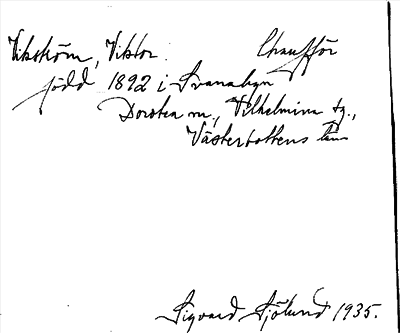 Vikström, Viktor. Chaufför
född 1892 i Svanabyn
Dorotea sn, Vilhelmina tg.,
Västerbottens län
Sigvard Sjölund 1935.